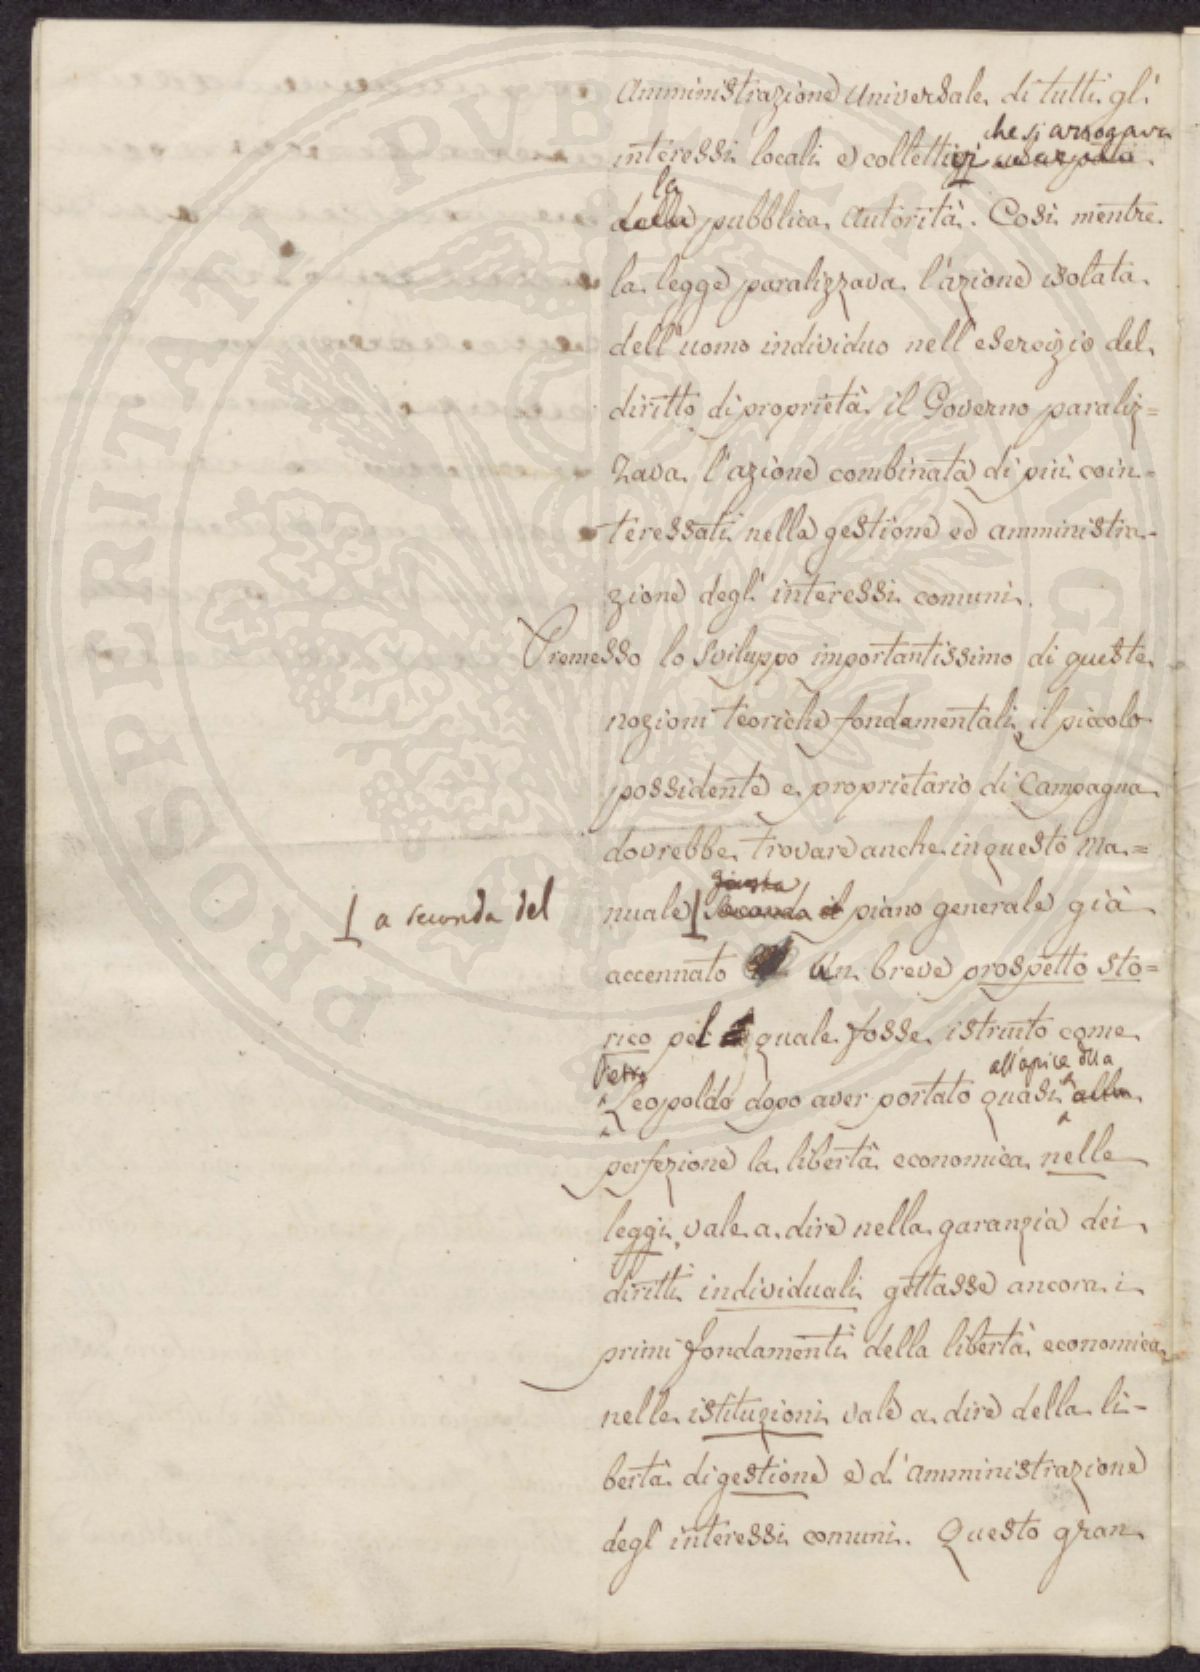 Amministrazione Universale di tutti gl'
che si arrogava
interessi locali e collettivi usurpata
la
dalla pubblica Autorità. Così mentre
la legge paralizzava l'azione isolata
dell'uomo individuo nell'esercizio del
diritto di proprietà il Governo paraliz=
zava l'azione combinata di più coin=
teressati nella gestione ed amministra=
zione degl'interessi comuni.
Premesso lo sviluppo importantissimo di queste
nozioni teoriche fondamentali, il piccolo
possidente e proprietario di Campagna
dovrebbe trovare anche in questo ma=
giusta
nuale secondo il piano generale già
a seconda del
accennato un breve prospetto sto=
rico pel quale fosse istruito come
Pietro all'apice della
Leopoldo dopo aver portato quasi alla
perfezione la libertà economica nelle
leggi, vale a dire nella garanzia dei
diritti individuali gettasse ancora i
primi fondamenti della libertà economica
nelle istituzioni vale a dire della li=
bertà di gestione e d'amministrazione
degl'interessi comuni. Questo gran
PROSPERITATI PUBLICAE AUGENDAE